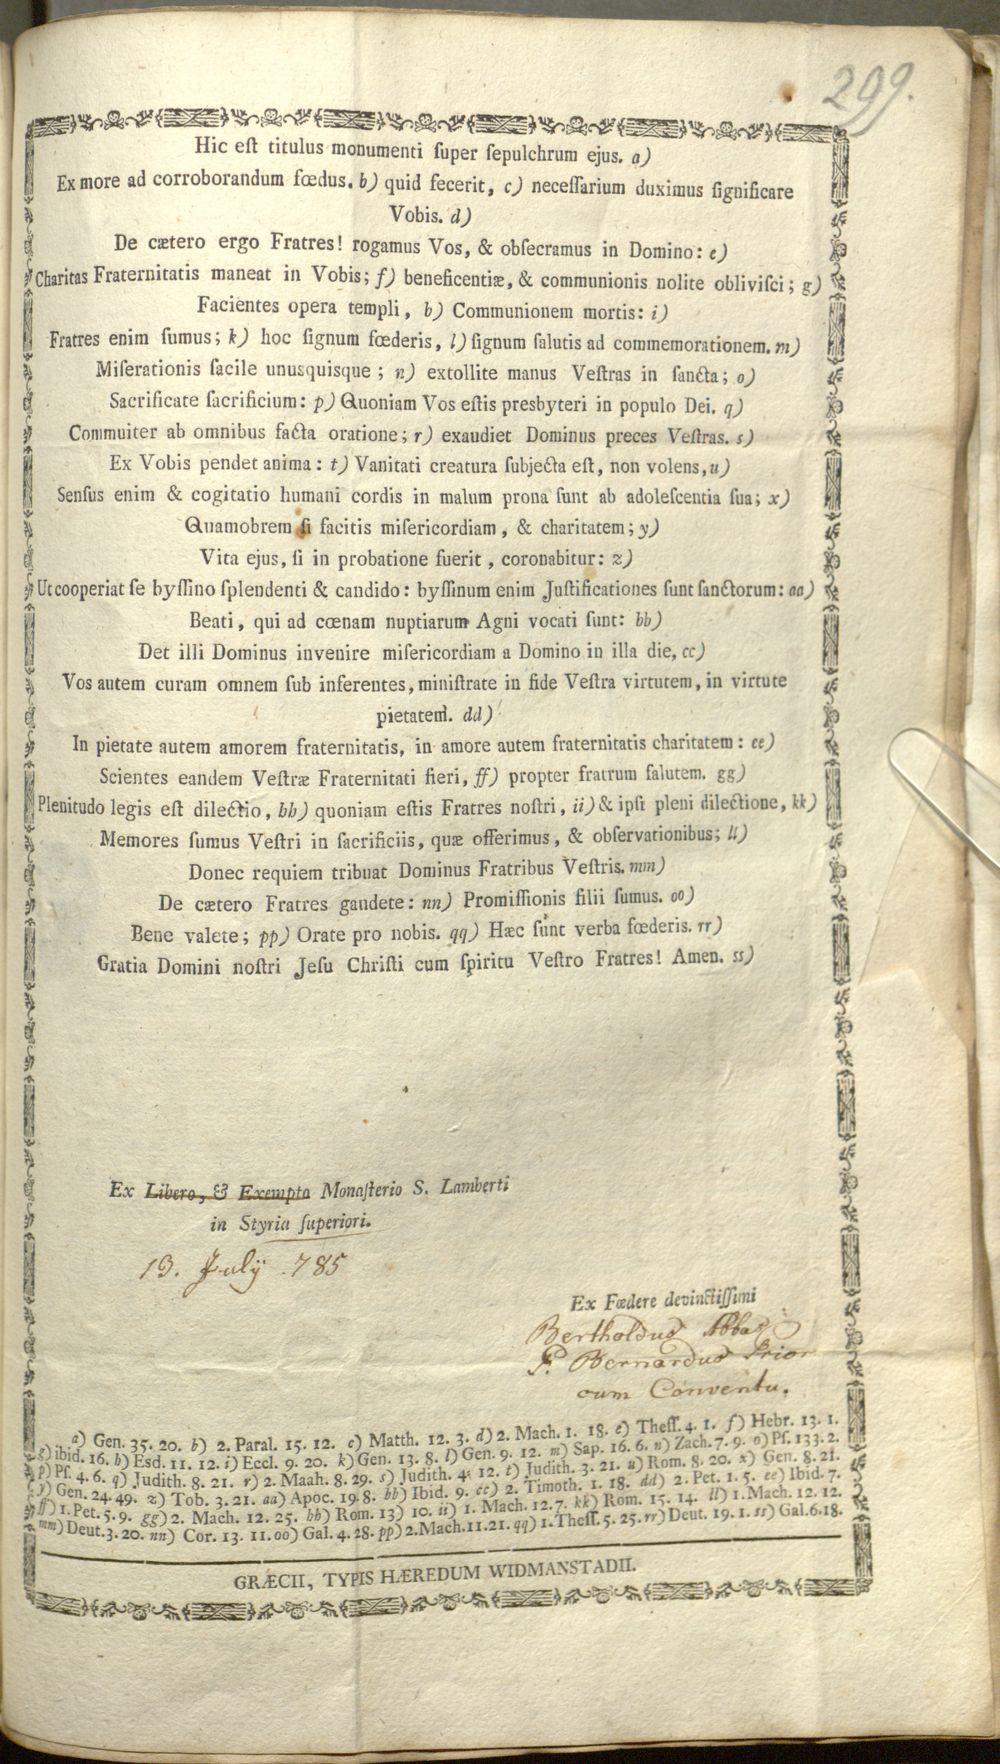 299.
Hic eſt titulus monumenti ſuper ſepulchrum ejus. a)
Ex more ad corroborandum fœdus. b) quid fecerit, c) neceſſarium duximus ſignificare
Vobis. d)
De cætero ergo Fratres! rogamus Vos, & obſecramus in Domino: e)
Charitas Fraternitatis maneat in Vobis; f) beneficentiæ, & communionis nolite obliviſci; g)
Facientes opera templi, h) Communionem mortis: i)
Fratres enim ſumus; k) hoc ſignum fœderis, l) ſignum ſalutis ad commemorationem. m)
Miſerationis facile unusquisque; n) extollite manus Veſtras in ſancta; o)
Sacrificate ſacrificium: p) Quoniam Vos eſtis presbyteri in populo Dei. q)
Commuiter ab omnibus facta oratione; r) exaudiet Dominus preces Veſtras. s)
Ex Vobis pendet anima: t) Vanitati creatura ſubjecta eſt, non volens, u)
Senſus enim & cogitatio humani cordis in malum prona ſunt ab adoleſcentia ſua; x)
Quamobrem ſi facitis miſericordiam, & charitatem; y)
Vita ejus, ſi in probatione fuerit, coronabitur: z)
Ut cooperiat ſe byſſino ſplendenti & candido: byſſinum enim Juſtificationes ſunt ſanctorum: aa)
Beati, qui ad cœnam nuptiarum Agni vocati ſunt: bb)
Det illi Dominus invenire miſericordiam a Domino in illa die, cc)
Vos autem curam omnem ſub inferentes, miniſtrate in fide Veſtra virtutem, in virtute
pietatem. dd)
In pietate autem amorem fraternitatis, in amore autem fraternitatis charitatem: ee)
Scientes eandem Veſtræ Fraternitati fieri, ff) propter fratrum ſalutem. gg)
Plenitudo legis eſt dilectio, hh) quoniam eſtis Fratres noſtri, ii) & ipſi pleni dilectione, kk)
Memores ſumus Veſtri in ſacrificiis, quæ offerimus, & obſervationibus; ll)
Donec requiem tribuat Dominus Fratribus Veſtris. mm)
De cætero Fratres gaudete: nn) Promiſſionis filii ſumus. oo)
Bene valete; pp) Orate pro nobis. qq) Hæc ſunt verba fœderis. rr)
Gratia Domini noſtri Jeſu Chriſti cum ſpiritu Veſtro Fratres! Amen. ss)
Ex Libero, & Exempto Monaſterio S. Lamberti
in Styria ſuperiori.
13. July 785
Ex Fœdere devinctiſſimi
Bertholdus Abbas
P. Bernardus Prior
cum Conventu.
a) Gen. 35. 20. b) 2. Paral. 15. 12. c) Matth. 12. 3. d) 2. Mach. 1. 18. e) Theſſ. 4. 1. f) Hebr. 13. 1.
g) ibid. 16. h) Esd. 11. 12. i) Eccl. 9. 20. k) Gen. 13. 8. l) Gen. 9. 12. m) Sap. 16. 6. n) Zach. 7. 9. o) Pſ. 133. 2.
p) Pſ. 4. 6. q) Judith. 8. 21. r) 2. Maah. 8. 29. s) Judith. 4. 12. t) Judith. 3. 21. u) Rom. 8. 20. x) Gen. 8. 21.
y) Gen. 24. 49. z) Tob. 3. 21. aa) Apoc. 19. 8. bb) Ibid. 9. cc) 2. Timoth. 1. 18. dd) 2. Pet. 1. 5. ee) Ibid. 7.
ff) 1. Pet. 5. 9. gg) 2. Mach. 12. 25. hh) Rom. 13) 10. ii) 1. Mach. 12. 7. kk) Rom. 15. 14. ll) 1. Mach. 12. 12.
mm) Deut. 3. 20. nn) Cor. 13. 11. oo) Gal. 4. 28. pp) 2. Mach. 11. 21. qq) 1. Theſſ. 5. 25. rr) Deut. 19. 1. ss) Gal. 6. 18.
GRÆCII, TYPIS HÆREDUM WIDMANSTADII.